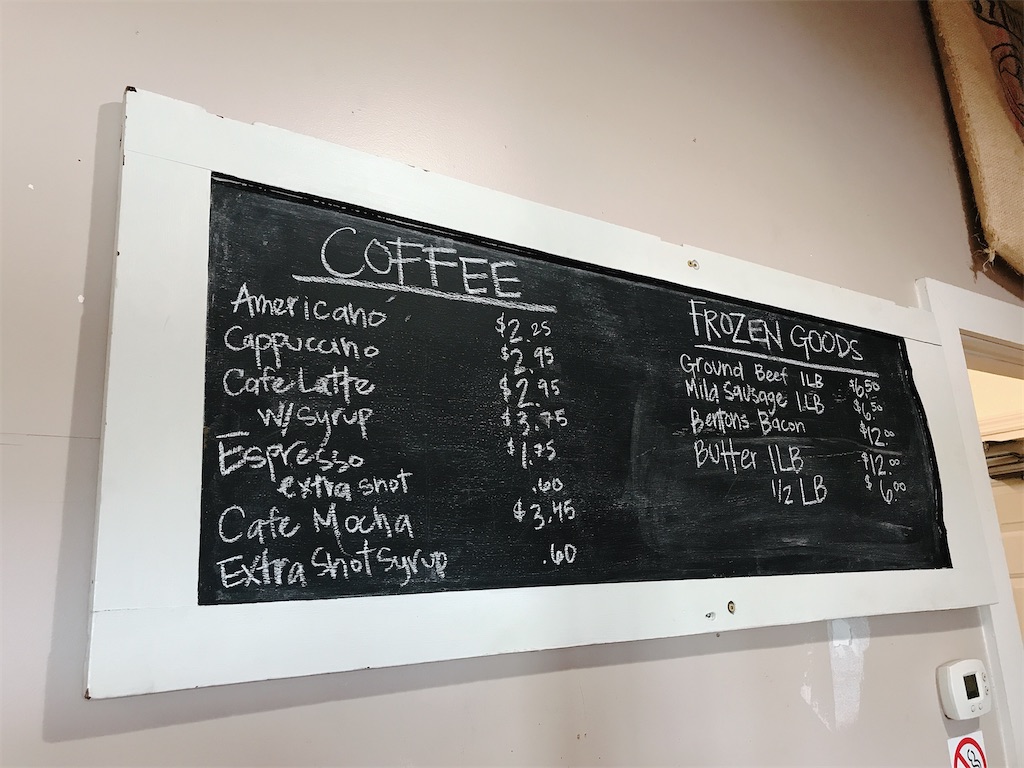 COFFEE
Americano $2.25
Cappuccino $2.95
Cafe Latte $2.95
w/syrup $3.75
Espresso $1.75
extra shot .60
Cafe Mocha $3.45
Extra Shot Syrup .60
FROZEN GOODS
Ground Beef 1LB $6.50
Mild Sausage 1LB $6.50
Bentons Bacon $12.00
Butter 1LB $12.00
1/2 LB $6.00